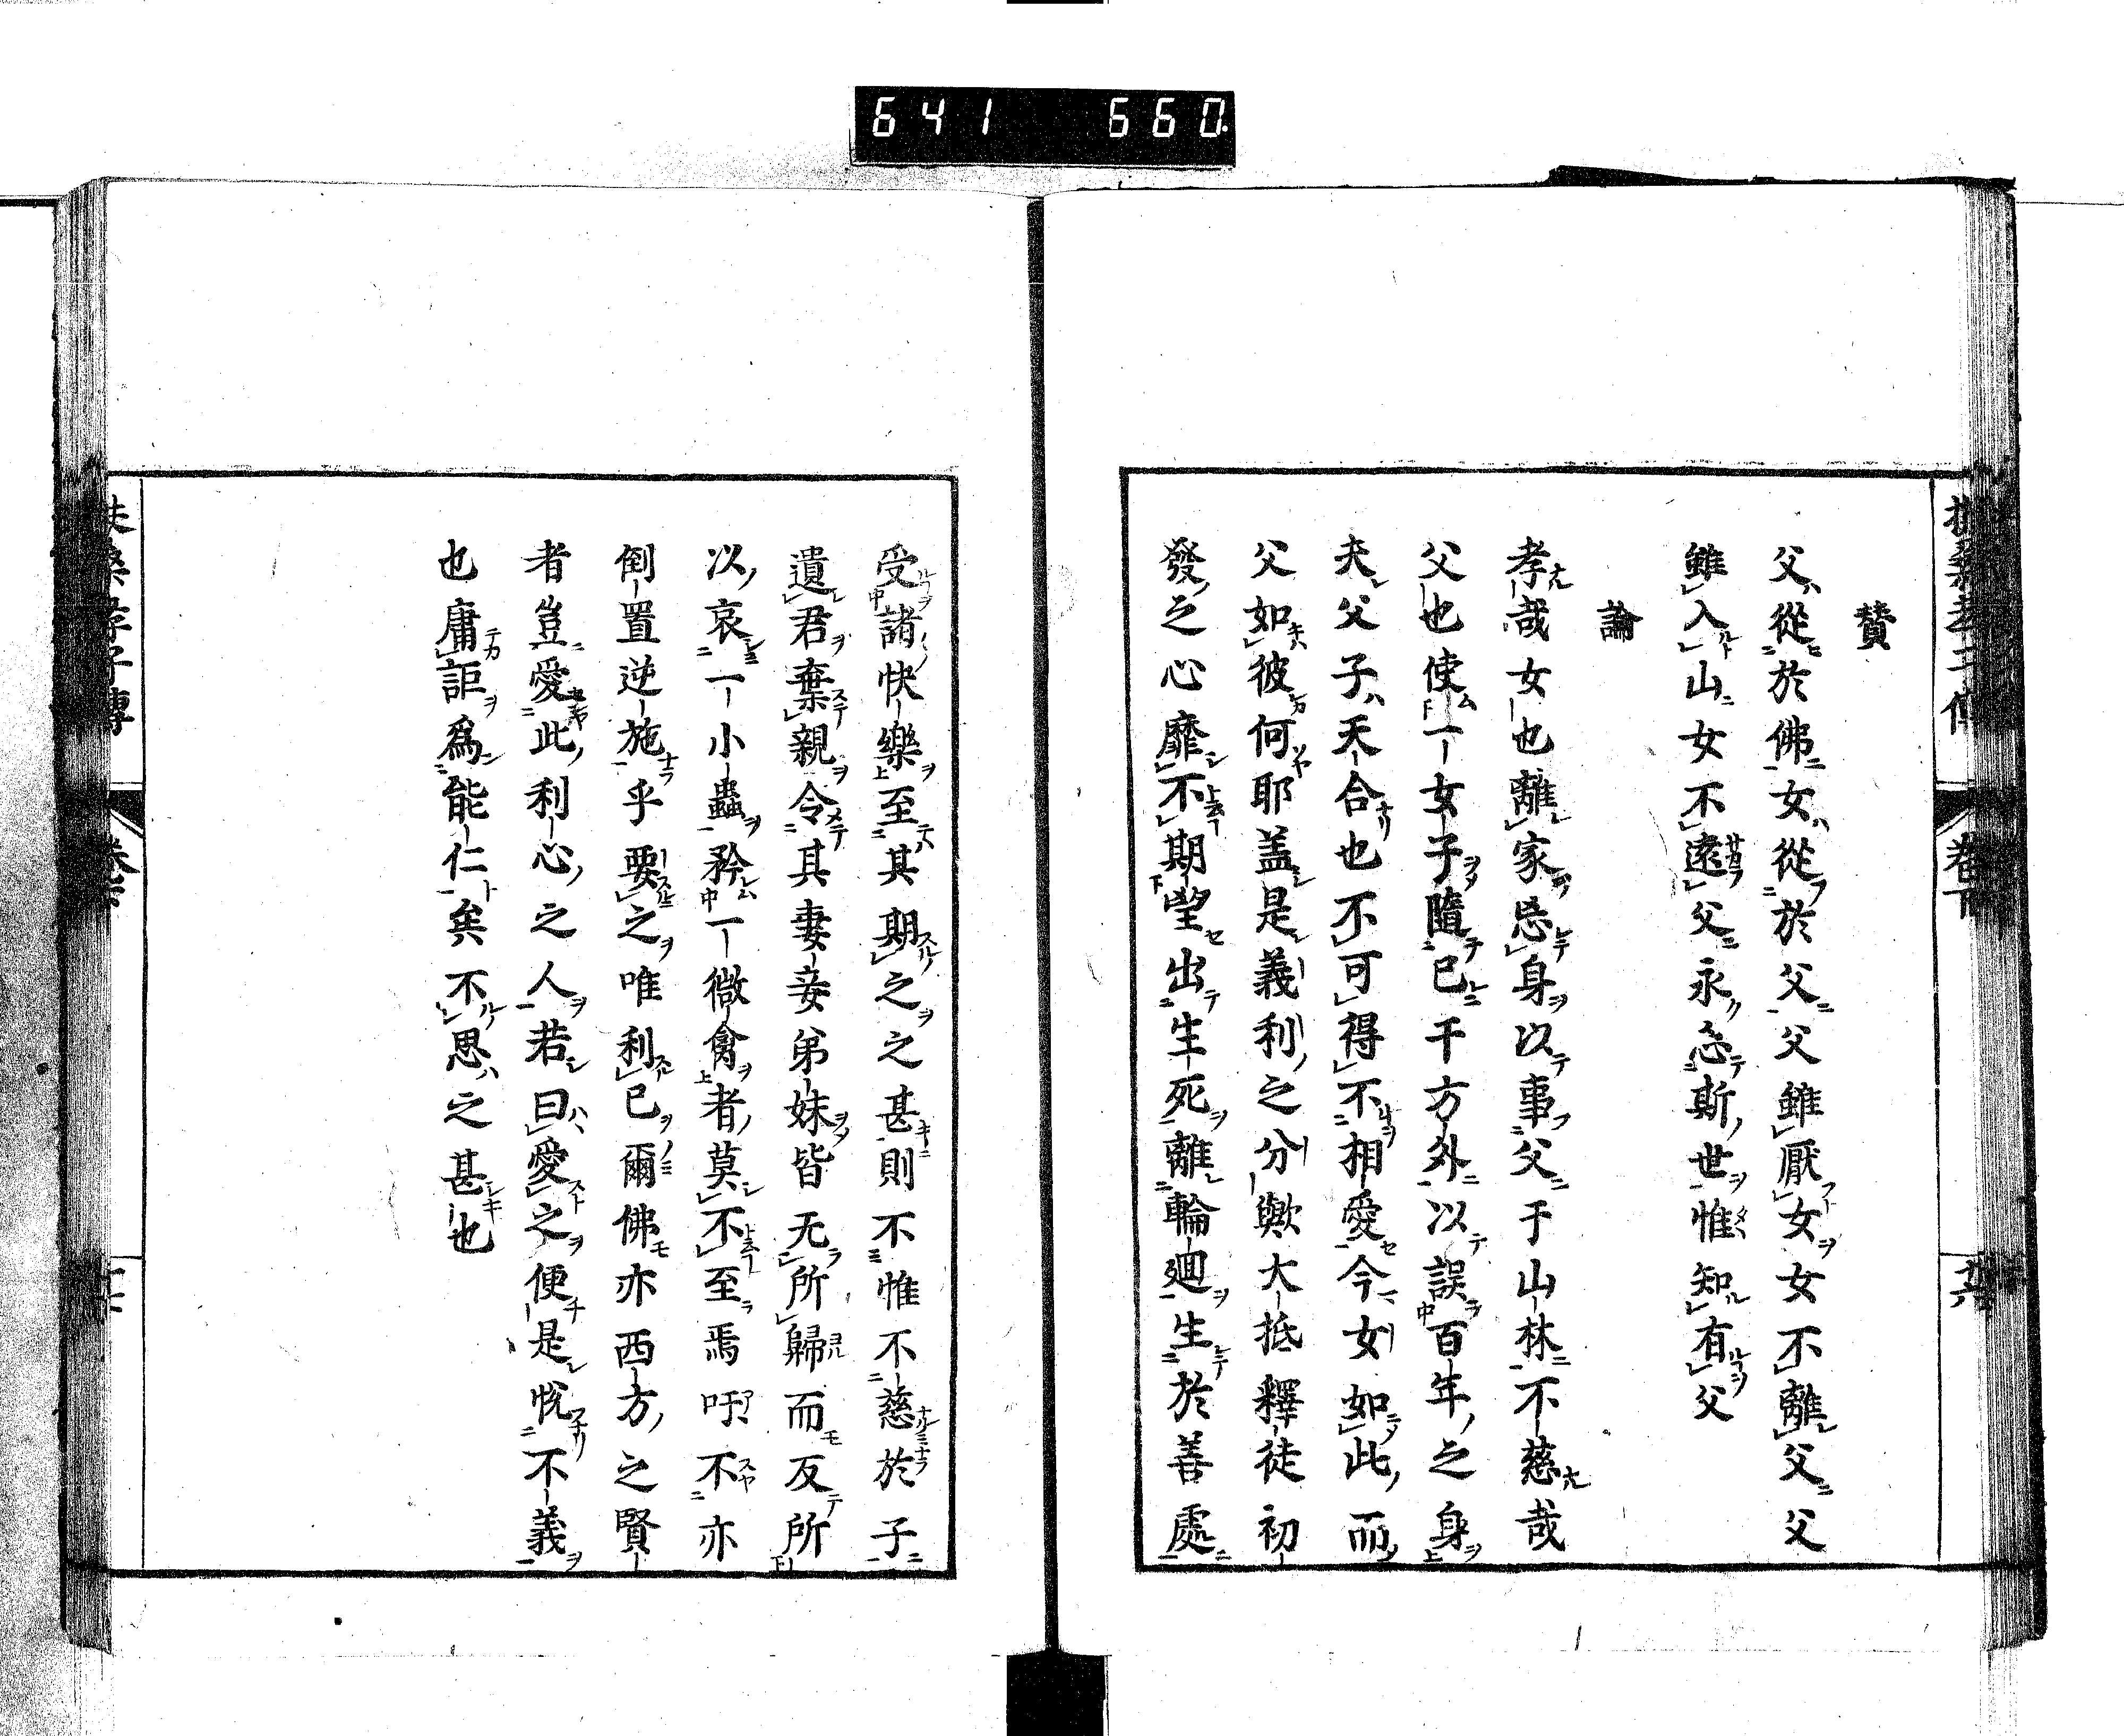 641 660
扶桑孝子傳 卷下 十六
贊
父從於佛女從於父父雖厭女女不離父父
雖入山女不遠父永忘斯世惟知有父
論
孝哉女也離家忘身以事父于山林不慈哉
父也使一女子隨已于方外以誤百年之身
夫父子天合也不可得不相愛今女如此而
父如彼何耶盖是義利之分歟大抵釋徒初
發之心靡不期望出生死離輪廻生於善處
受諸快樂至其期之之甚則不惟不慈於子
遺君棄親令其妻妾弟妹皆无所歸而反所
以哀一小蟲矜一微禽者莫不至焉吁不亦
倒置逆施乎要之唯利已爾佛亦西方之賢
者豈愛此利心之人若曰愛之便是悅不義
也庸詎爲能仁矣不思之甚也
扶桑孝子傳 卷下